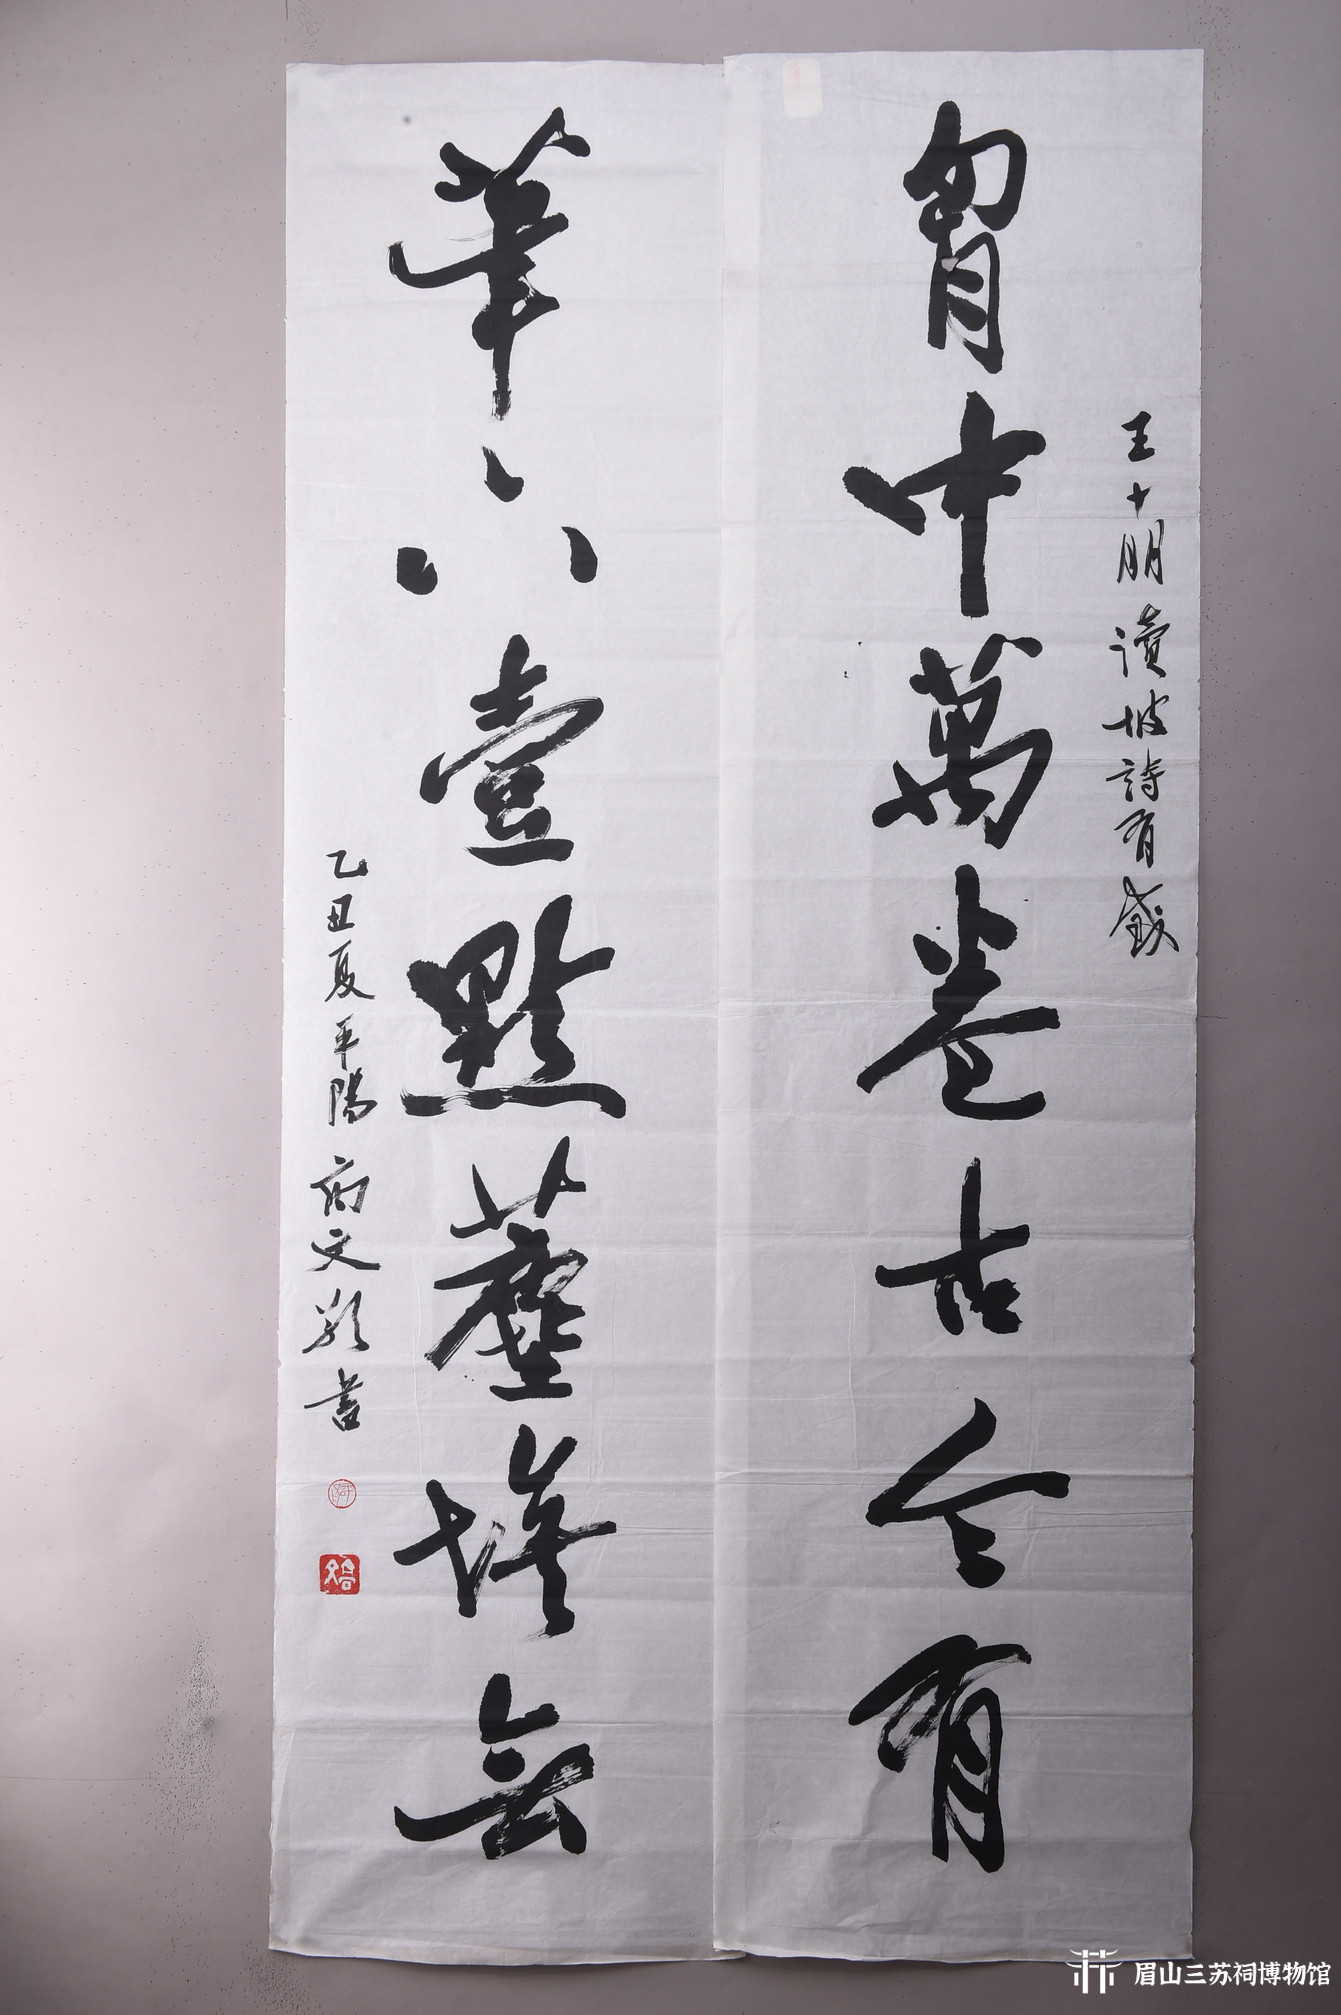 王十朋讀坡詩有感
胷中萬卷古今有
筆下壹點塵埃無
乙丑夏平陽
文
書
眉山三苏祠博物馆